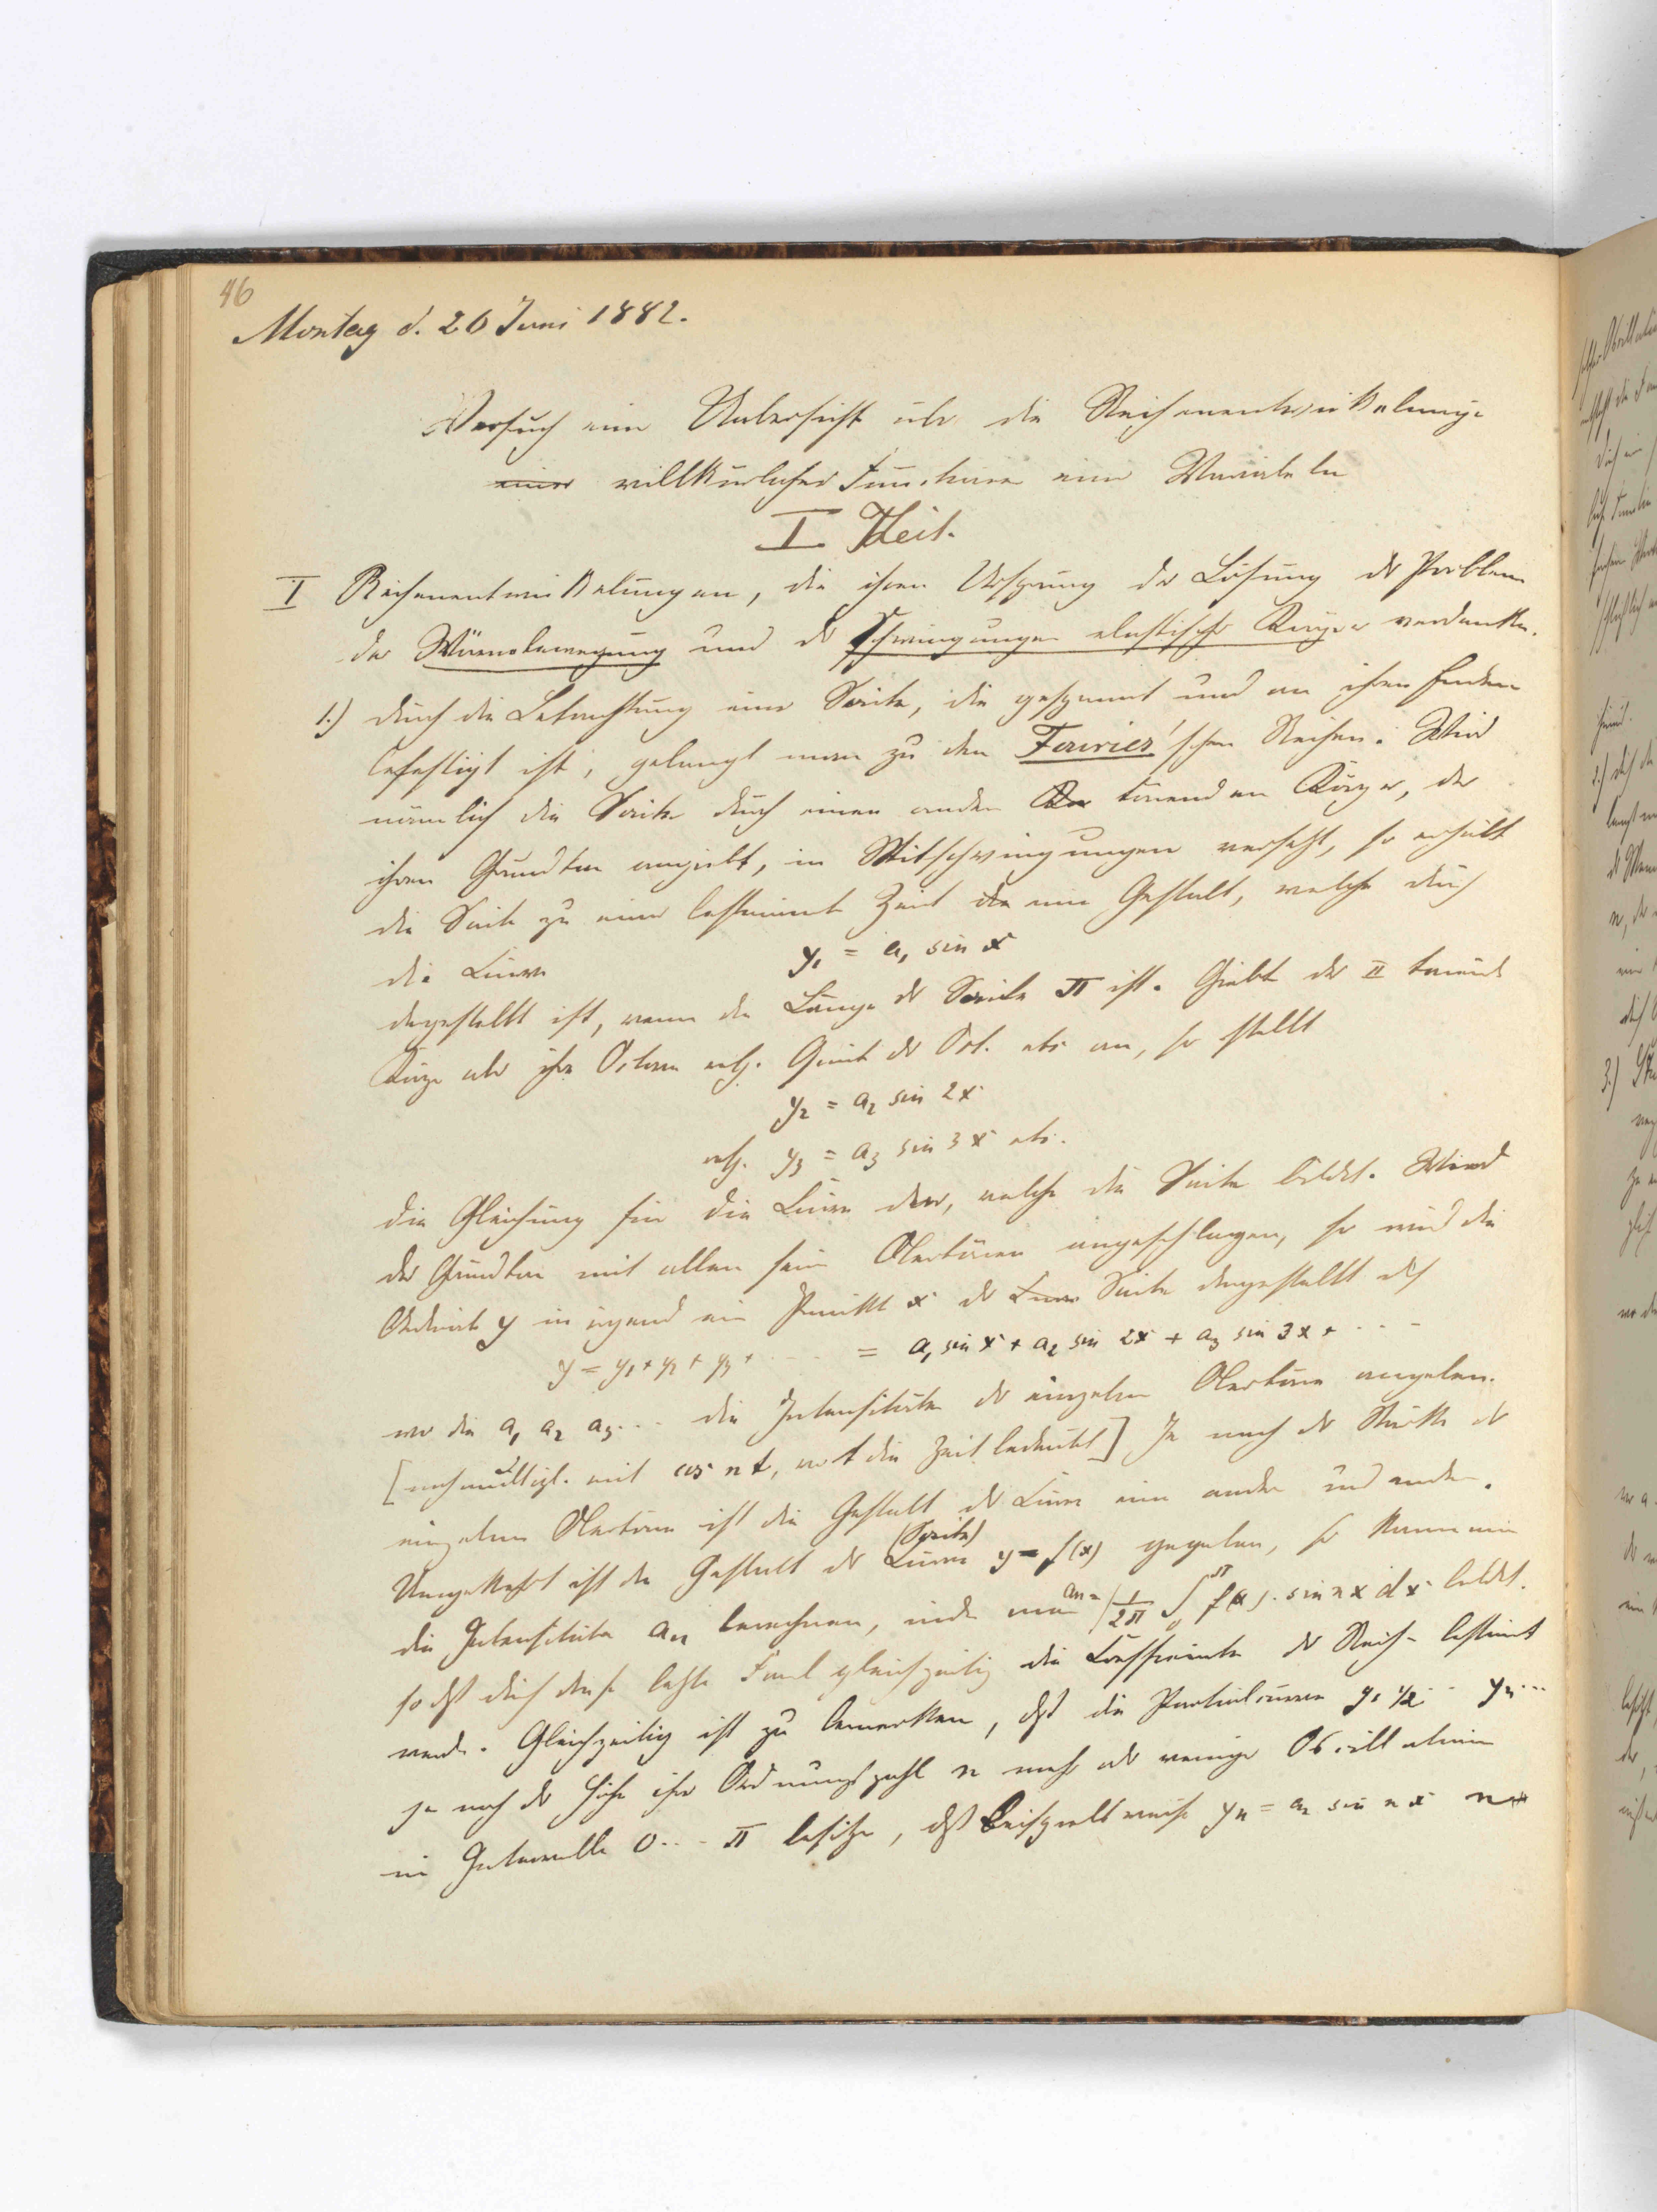 46
Montag d. 26 Juni 1882.
Versuch einer Uebersicht über die Reihenentwickelungen
einer willkürlicher Functionen einer Variabeln
I. Theil.
I Reihenentwickelungen, die ihren Ursprung der Lösung der Probleme
der Wärmebewegung und der Schwingungen elastischer Körper verdanken.
1.) Durch die Betrachtung einer Saite, die gespannt und an ihren Enden
befestigt ist, gelangt man zu den Fourier'schen Reihen. Wird
nämlich die Saite durch einen anderen tönenden Körper, der
ihren Grundton angiebt, in Mitschwingungen versetzt, so erhält
die Saite zu einer bestimmten Zeit eine Gestalt, welche durch
die Curve y₁ = a₁ sin x
dargestellt ist, wenn die Länge der Saite π ist. Giebt der II tönende
Körper aber ihre Octave resp. Quint der Oct. etc an, so stellt
y₂ = a₂ sin 2x
resp. y₃ = a₃ sin 3x etc.
die Gleichung für die Curve dar, welche die Saite bildet. Wird
der Grundton mit allen seinen Obertönen angeschlagen, so wird die
Ordinate y in irgend ein Punkt x der Curve Saite dargestellt durch
y = y₁ + y₂ + y₃ + ... = a₁ sin x + a₂ sin 2x + a₃ sin 3x + ...
wo die a₁ a₂ a₃... die Intensitäten der einzelnen Obertöne angeben.
[noch multipl. mit cos nt, wo t die Zeit bedeutet] Je nach der Stärke der
einzelnen Obertöne ist die Gestalt der Curve eine andere und andere.
Umgekehrt ist die Gestalt der Curve (Saite) y = f(x) gegeben, so kann man
die Intensitäten aₙ berechnen, indem man aₙ = 1/2π ∫₀^π f(x). sin nx dx bildet.
so dß durch diese letzte Formel gleichzeitig die Coefficienten der Reihe bestimmt
werden. Gleichzeitig ist zu bemerken, dß die Partialcurven y₁ y₂ ... yₙ...
je nach der Höhe ihrer Ordnungszahl n mehr oder weniger Oscillationen
im Intervalle 0... π besitzen, dß beispielsweise yₙ = aₙ sin nx n